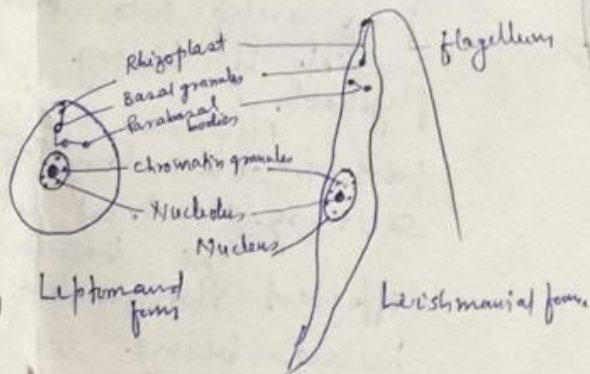 Rhizoplast
flagellum
Basal granules
Parabasal
bodies
Chromatin granules
Nucleolus
Nucleus
Leptomanad
form
Leishmanial form.